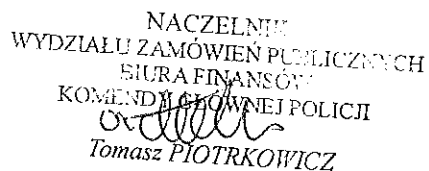 NACZELNIK
WYDZIAŁU ZAMÓWIEŃ PUBLICZNYCH
BIURA FINANSÓW
KOMENDY GŁÓWNEJ POLICJI
Tomasz PIOTRKOWICZ